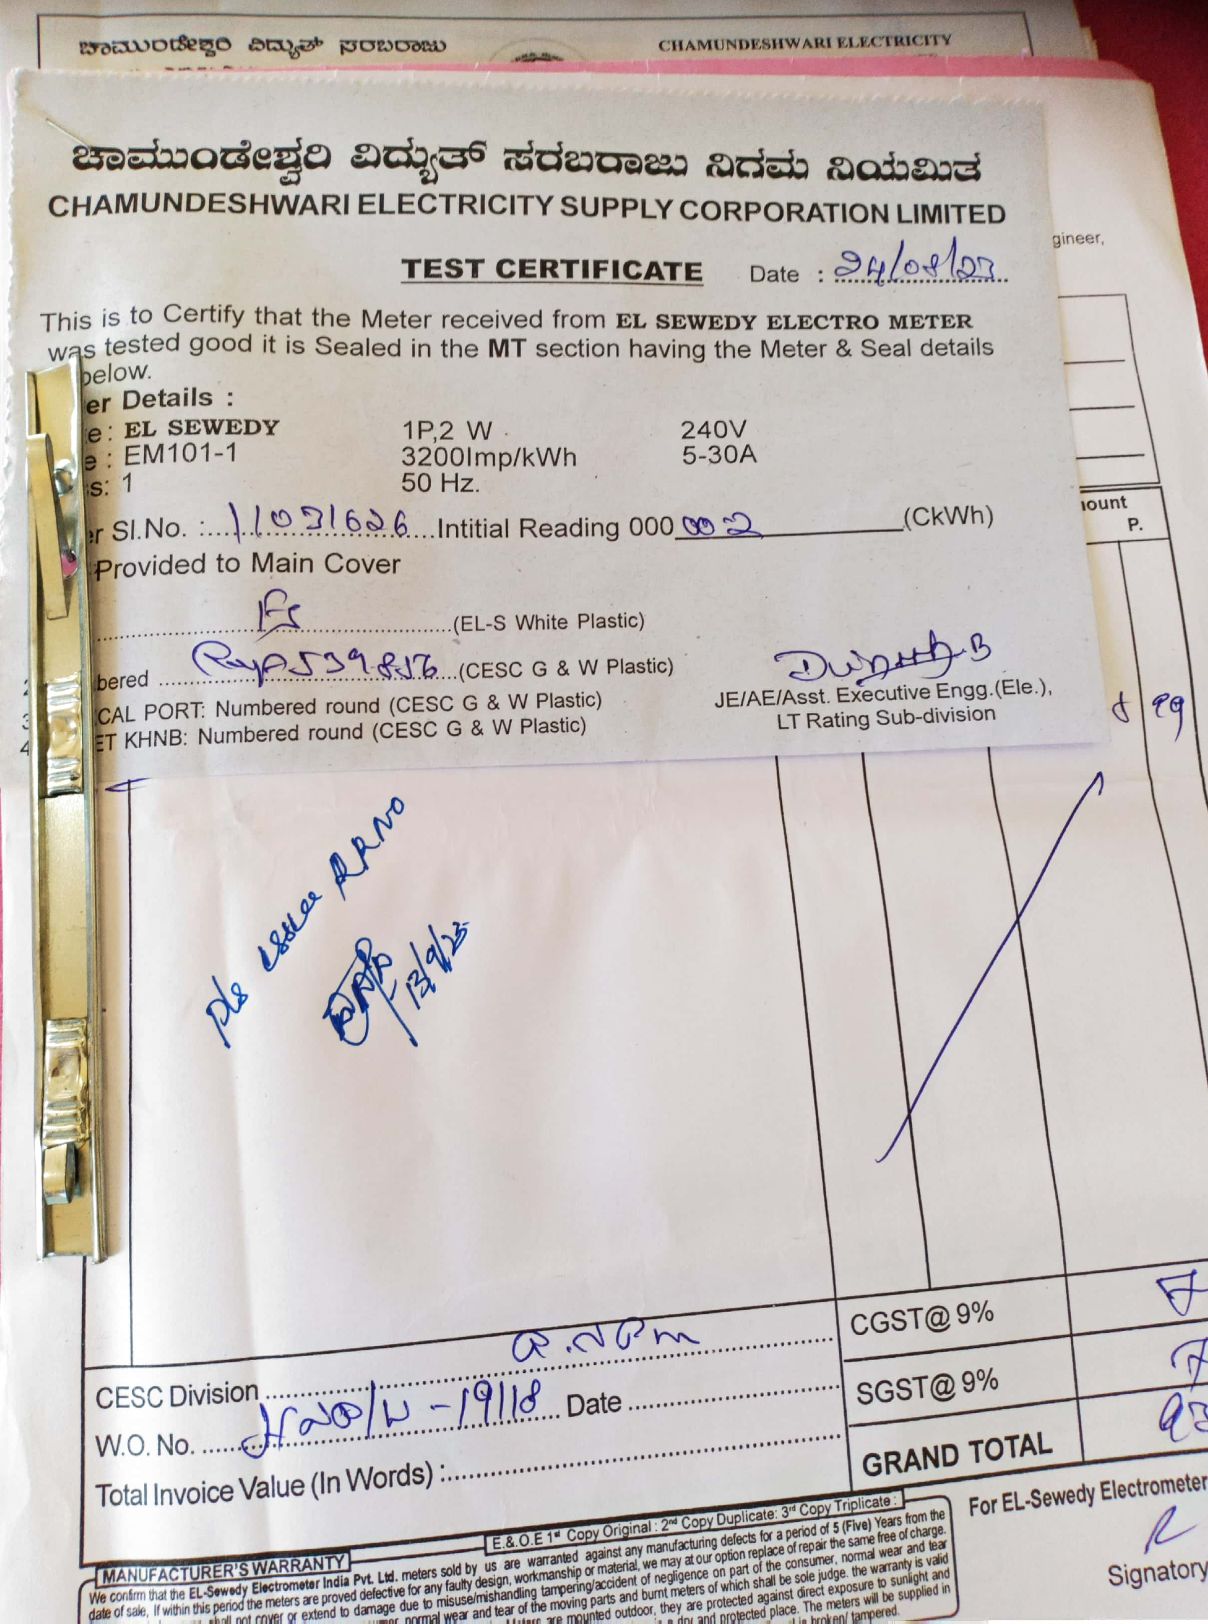 ಚಾಮುಂಡೇಶ್ವರಿ ವಿದ್ಯುತ್ ಸರಬರಾಜು
CHAMUNDESHWARI ELECTRICITY
ಚಾಮುಂಡೇಶ್ವರಿ ವಿದ್ಯುತ್ ಸರಬರಾಜು ನಿಗಮ ನಿಯಮಿತ
CHAMUNDESHWARI ELECTRICITY SUPPLY CORPORATION LIMITED
gineer,
TEST CERTIFICATE Date : 24/08/23
This is to Certify that the Meter received from EL SEWEDY ELECTRO METER
was tested good it is Sealed in the MT section having the Meter & Seal details
below.
er Details :
e: EL SEWEDY 1P,2 W 240V
e : EM101-1 3200Imp/kWh 5-30A
s: 1 50 Hz.
ount
P.
r Sl.No. : 11031626 Intitial Reading 000 002 (CkWh)
Provided to Main Cover
(EL-S White Plastic)
bered 539856 (CESC G & W Plastic)
CAL PORT: Numbered round (CESC G & W Plastic)
ET KHNB: Numbered round (CESC G & W Plastic)
JE/AE/Asst. Executive Engg.(Ele.),
LT Rating Sub-division
Pls issue RRNO
13/9/23
CGST@ 9%
CESC Division
SGST@ 9%
W.O. No. 19118 Date
GRAND TOTAL
Total Invoice Value (In Words) :
E.& O.E 1st Copy Original : 2nd Copy Duplicate: 3rd Copy Triplicate :
For EL-Sewedy Electrometer
Signatory
MANUFACTURER'S WARRANTY
We confirm that the EL-Sewedy Electrometer India Pvt. Ltd. meters sold by us are warranted against any manufacturing defects for a period of 5 (Five) Years from the
date of sale, If within this period the meters are proved defective for any faulty design, workmanship or material, we may at our option replace of repair the same free of charge.
shall not cover or extend to damage due to misuse/mishandling tampering/accident of negligence on part of the consumer, normal wear and tear
normal wear and tear of the moving parts and burnt meters of which shall be sole judge. the warranty is valid
are mounted outdoor, they are protected against direct exposure to sunlight and
dry and protected place. The meters will be supplied in
is broken/ tampered.